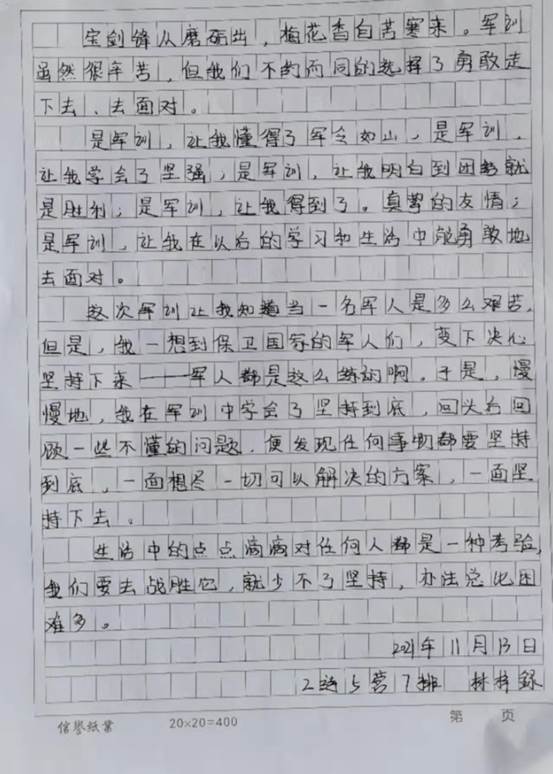 宝剑锋从磨砺出，梅花香自苦寒来。军训
虽然很辛苦，但我们不约而同的选择了勇敢走
下去、去面对。
是军训，让我懂得了军令如山，是军训，
让我学会了坚强；是军训，让我明白到团结就
是胜利；是军训，让我得到了。真挚的友情；
是军训，让我在以后的学习和生活中能勇敢地
去面对。
这次军训让我知道当一名军人是多么艰苦，
但是，我一想到保卫国家的军人们，变下决心
坚持下来——军人都是这么练的啊。于是，慢
慢地，我在军训中学会了坚持到底，回头看回
顾一些不懂的问题，便发现任何事物都要坚持
到底，一面想尽一切可以解决的方案，一面坚
持下去。
生活中的点点滴滴对任何人都是一种考验，
我们要去战胜它，就少不了坚持，办法总比困
难多。
2021年11月13日
2连5营7排 林梓
信誉纸业 20×20=400 第 页